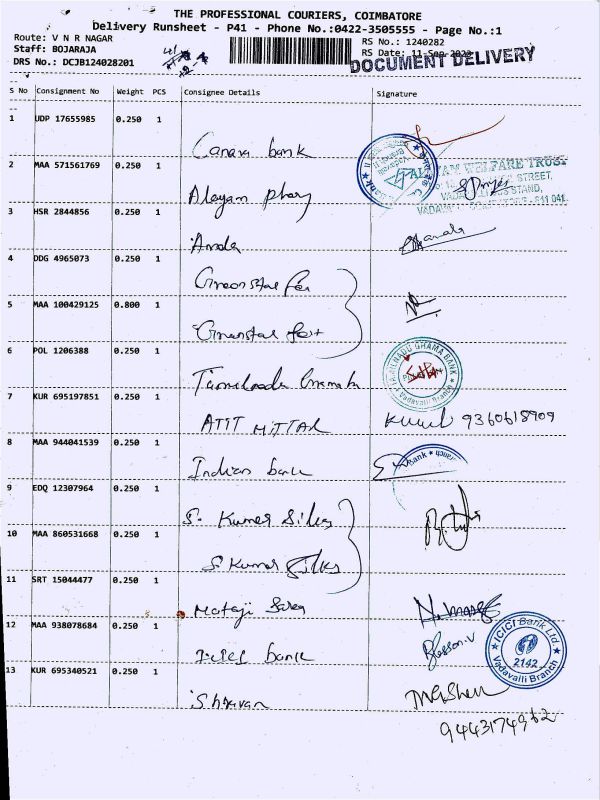 THE PROFESSIONAL COURIERS, COIMBATORE
Delivery Runsheet - P41 - Phone No.:0422-3505555 - Page No.:1
Route: V N R NAGAR
Staff: BOJARAJA
DRS No.: DCJB124028201
RS No.: 1240282
RS Date: 11-Sep-2023
DOCUMENT DELIVERY
S No Consignment No Weight PCS Consignee Details Signature
1 UDP 17655985 0.250 1
Canara bank
2 MAA 571561769 0.250 1
WELFARE TRUST
STREET,
STAND,
Alayam
3 HSR 2844856 0.250 1
4 DDG 4965073 0.250 1
Greenstar
5 MAA 100429125 0.800 1
Greenstar
6 POL 1206388 0.250 1
TAMILNADU GRAMA BANK
Vadavalli Branch
7 KUR 695197851 0.250 1
MITTAL 9360618909
8 MAA 944041539 0.250 1
Indian bank
Bank
9 EDQ 12307964 0.250 1
S. Kumar Silks
10 MAA 860531668 0.250 1
S Kumar Silks
11 SRT 15044477 0.250 1
Mataji
12 MAA 938078684 0.250 1
ICICI bank
ICICI Bank Ltd
2142
Vadavalli Branch
13 KUR 695340521 0.250 1
Shravan
9443174962